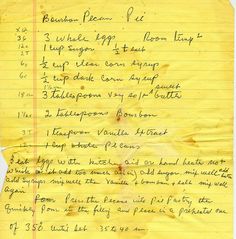 Bourbon Pecan Pie
X12
36 3 whole eggs Room temp
12 1 cup sugar ½ t salt
6c ½ cup clear corn syrup
6c ½ cup dark corn syrup
sweet
18 3 tablespoons very soft butter
1½ 2 tablespoons Bourbon
1 teaspoon Vanilla Extract
1 cup whole pecans
3 eat eggs with kitchen aid or hand beate not
whole add too much air, add sugar mix well
add syrups mix well the Vanilla + bourbon + salt mix well
again
Pour the Pecans into Pie Pastry, the
quickly Pour in the filling and place in a preheated oven
of 350 until set 35 to 40 m.